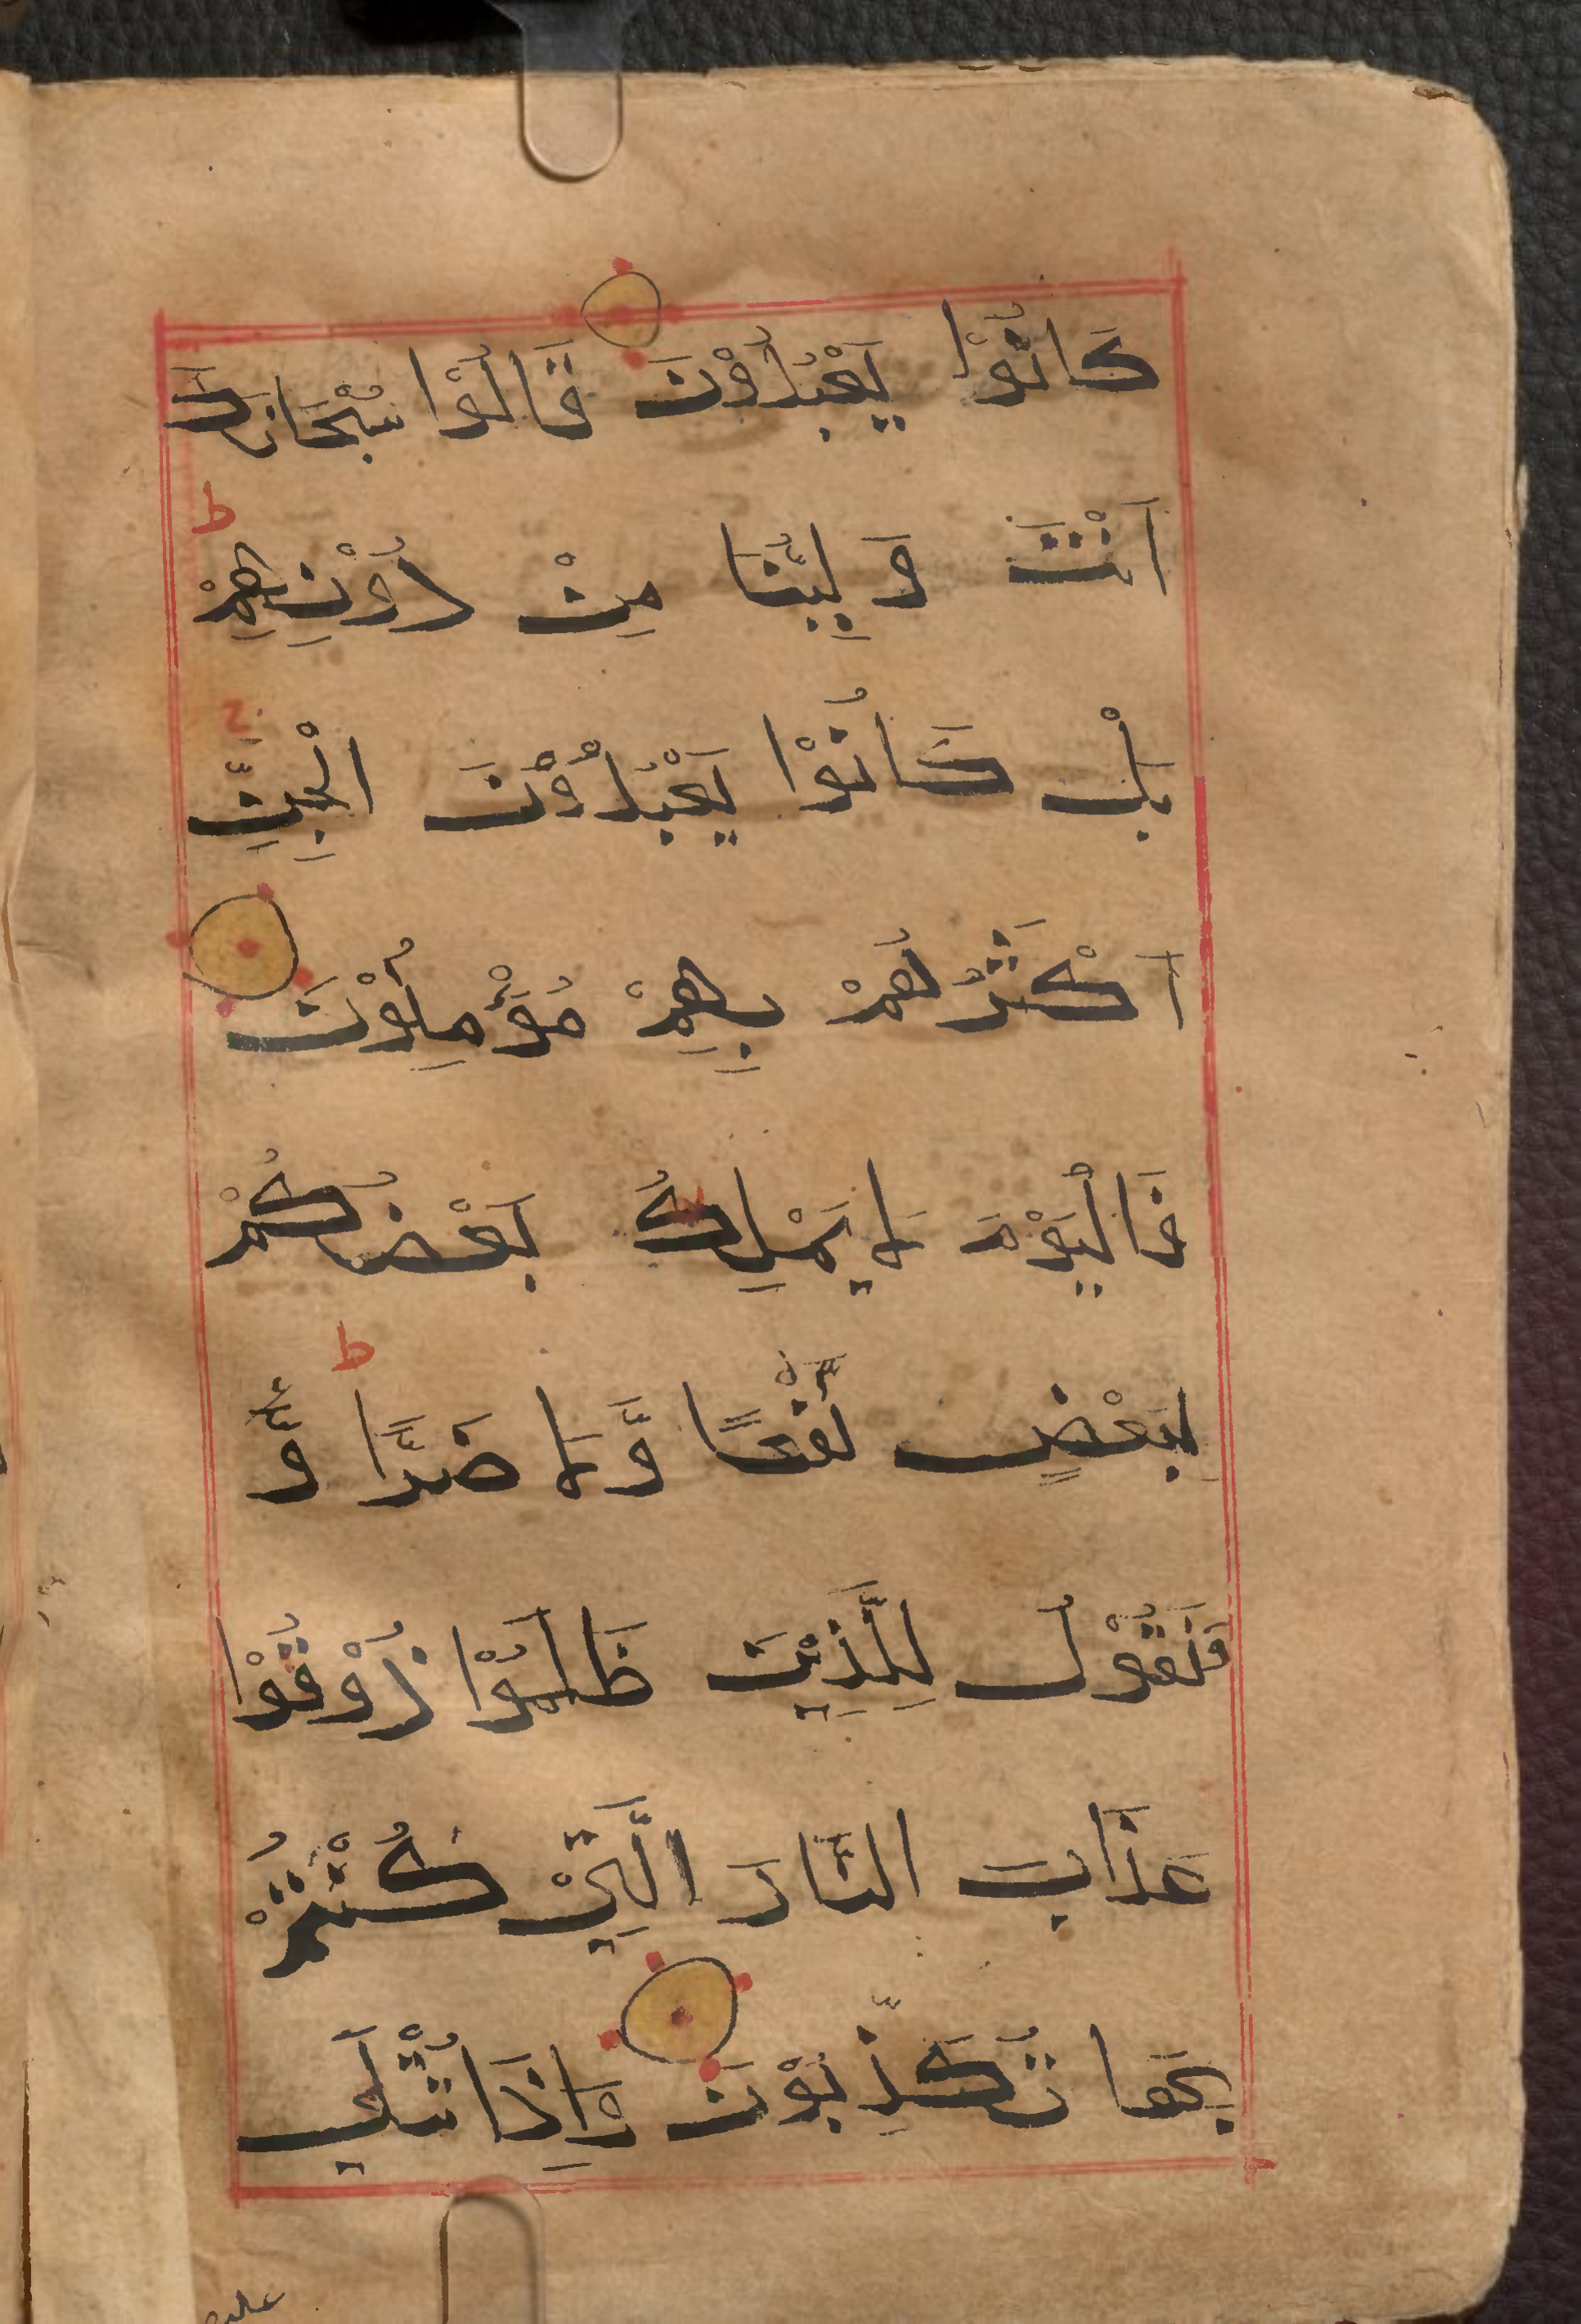 كَانُوْا يَعْبُدُوْنَ قَالُوْا سُبْحَانَكَ
اَنْتَ وَلِيُّنَا مِنْ دُوْنِهِمْ
ط
بَلْ كَانُوْا يَعْبُدُوْنَ الْجِنَّ
ج
اَكْثَرُهُمْ بِهِمْ مُؤْمِنُوْنَ
فَالْيَوْمَ لَا يَمْلِكُ بَعْضُكُمْ
لِبَعْضٍ نَفْعًا وَّلَا ضَرًّا وَّ
ط
فَنَقُوْلُ لِلَّذِيْنَ ظَلَمُوْا ذُوْقُوْا
عَذَابَ النَّارَ الَّتِيْ كُنْتُمْ
بِهَا تُكَذِّبُوْنَ وَاِذَا تُتْلَى